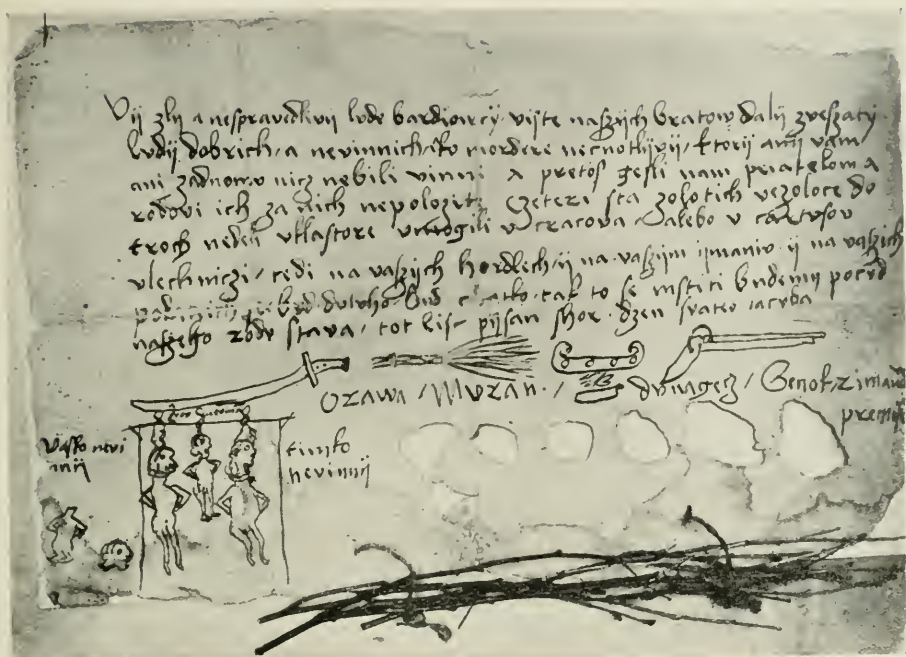 Vij zlij a nespravedlivij lvde bardiowcy vijste naßzijch bratow dalij zveßatij
lvdij dobrich / a nevinnich / ito mordere necnotlivij / ktorij anij vam
ani zadnomv nicz nebili vinni a pretoß gestli nam priatelom a
rodovi ich za nich nepolozite czeteri sta zolotich vezoloce do
troch nedeli vklastore vmogili v cracova alebo v cartvsov
vlechniczi / tedi na vaßzijch hordlech ij na vaßzijm ijmaniv ij na vaßzich
bvd dlvho bvd cratko tak to se mstiti bvdemij pocvd
naßeho rodv stava / tot list pijsan shor dzen svateo iacvba
Orawa / Mvran / dvnagecz /
vijsto nevi
nnij
timto
nevinnij